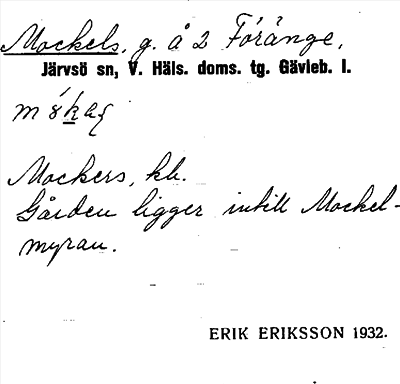 Mockels, g. å 2 Föränge,
Järvsö sn, V. Häls. doms. tg. Gävleb. l.
Mockers, kb.
Gården ligger intill Mockel-
myran.
ERIK ERIKSSON 1932.